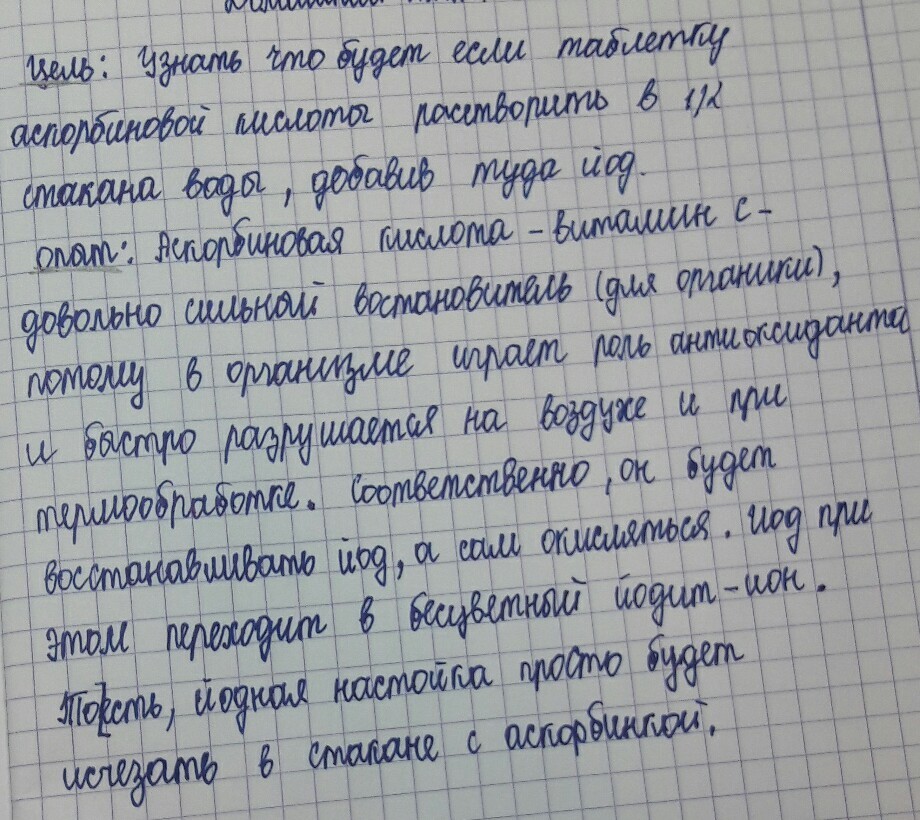 Цель: Узнать что будет если таблетку
аспорбиновой кислоты растворить в 1/2
стакана воды, добавив туда йод.
опыт: Аскорбиновая кислота - витамин с -
довольно сильной востановитель (для органики),
потому в организме играет роль антиоксиданта
и быстро разрушается на воздухе и при
термообработке. Соответственно, он будет
восстанавливать йод, а сам окисляться. Иод при
этом переходит в бесцветный йодит-ион.
То есть, йодная настойка просто будет
исчезать в стакане с аспорбинкой.